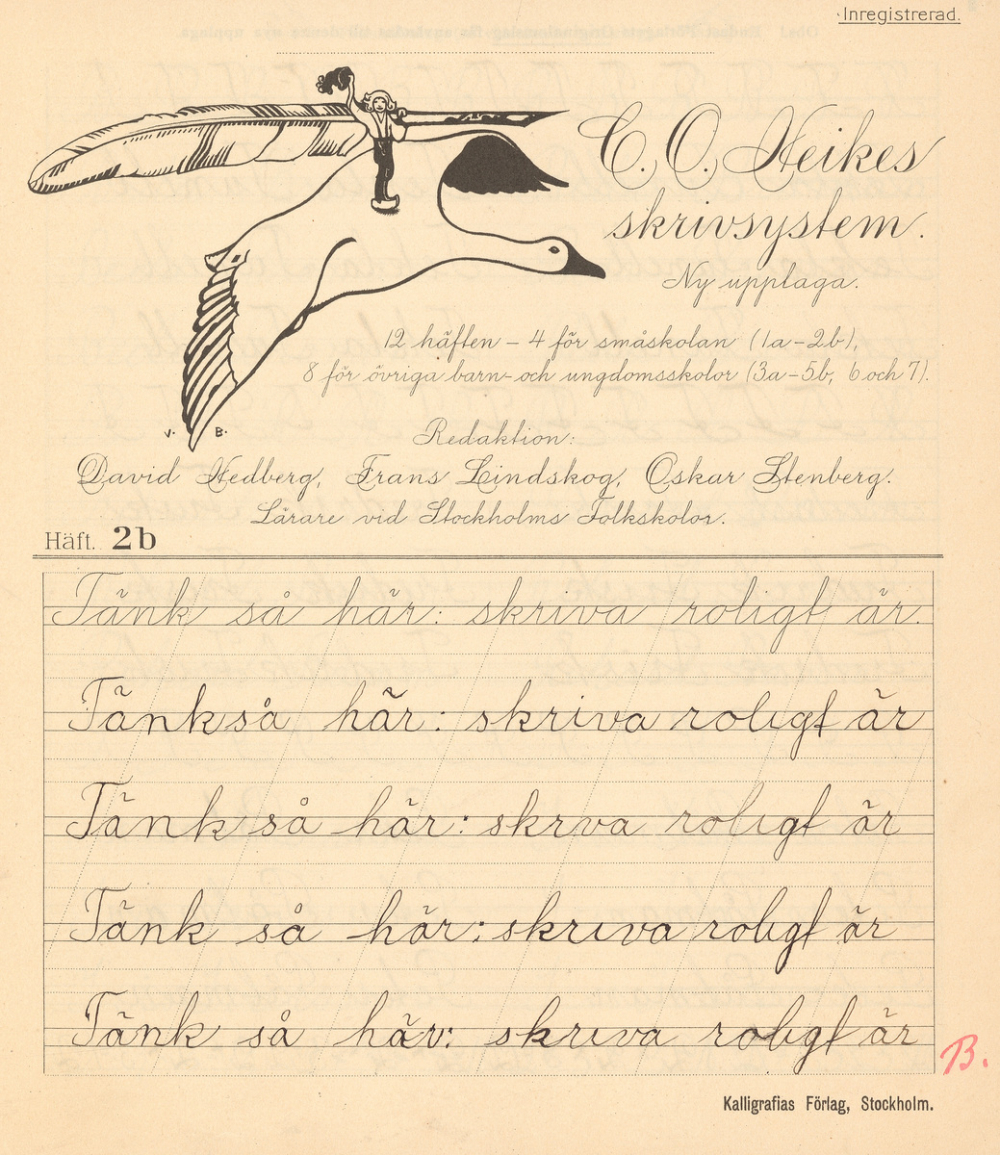 Inregistrerad.
C. O. Heikes
skrivsystem.
Ny upplaga.
12 häften – 4 för småskolan (1a–2b),
8 för övriga barn- och ungdomsskolor (3a–5b, 6 och 7).
V. B.
Redaktion:
David Hedberg, Frans Lindskog, Oskar Stenberg.
Lärare vid Stockholms Folkskolor.
Häft. 2b
Tänk så här: skriva roligt är.
Tänk så här: skriva roligt är
Tänk så här: skrva roligt är
Tänk så här: skriva roligt är
Tänk så här: skriva roligt är
B.
Kalligrafias Förlag, Stockholm.